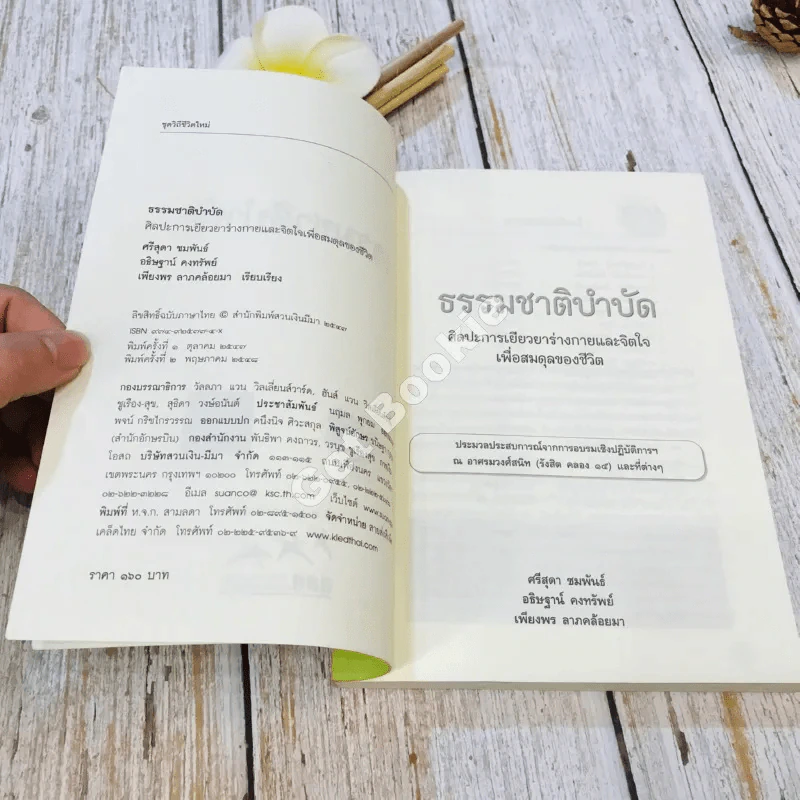 ชุดวิถีชีวิตใหม่
ธรรมชาติบำบัด
ศิลปะการเยียวยาร่างกายและจิตใจเพื่อสมดุลของชีวิต
ศรีสุดา ชมพันธ์
อธิษฐาน์ คงทรัพย์
เพียงพร ลาภคล้อยมา เรียบเรียง
ลิขสิทธิ์ฉบับภาษาไทย © สำนักพิมพ์สวนเงินมีมา ๒๕๔๗
ISBN ๙๗๔-๙๒๕๗๗-๔-X
พิมพ์ครั้งที่ ๑ ตุลาคม ๒๕๔๗
พิมพ์ครั้งที่ ๒ พฤษภาคม ๒๕๔๘
กองบรรณาธิการ วัลลภา แวน วิลเลี่ยนส์วาร์ด, ฮันส์ แวน
ชูเรือง-สุข, สุธิดา วงษ์อนันต์ ประชาสัมพันธ์ นฤมล
พจน์ กริชไกรวรรณ ออกแบบปก คนึงนิจ ศิวะสกุล พิสูจน์อักษร
(สำนักอักษรบิน) กองสำนักงาน พันธิพา คงถาวร,
โอสถ บริษัทสวนเงิน-มีมา จำกัด ๑๑๓-๑๑๕
เขตพระนคร กรุงเทพฯ ๑๐๒๐๐ โทรศัพท์
๐๒-๖๒๒-๓๒๒๘ อีเมล suanco@ ksc.th.com เว็บไซต์
พิมพ์ที่ ห.จ.ก. สามลดา โทรศัพท์ ๐๒-๘๙๕-๑๕๐๐ จัดจำหน่าย
เคล็ดไทย จำกัด โทรศัพท์ ๐๒-๒๒๕-๙๕๓๖-๙ www.kledthai.com
ราคา ๑๖๐ บาท
ธรรมชาติบำบัด
ศิลปะการเยียวยาร่างกายและจิตใจ
เพื่อสมดุลของชีวิต
ประมวลประสบการณ์จากการอบรมเชิงปฏิบัติการฯ
ณ อาศรมวงศ์สนิท (รังสิต คลอง ๑๕) และที่ต่างๆ
ศรีสุดา ชมพันธ์
อธิษฐาน์ คงทรัพย์
เพียงพร ลาภคล้อยมา
Get Bookie